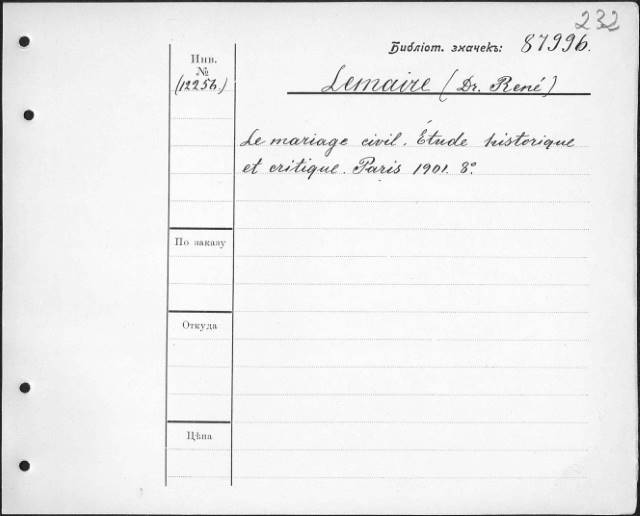 232
Библіот. значекъ: 87996.
Инв.
№
(12256.)
Lemaire (Dr. René)
Le mariage civil. Étude historique
et critique. Paris 1901. 8º.
По заказу
Откуда
Цѣна